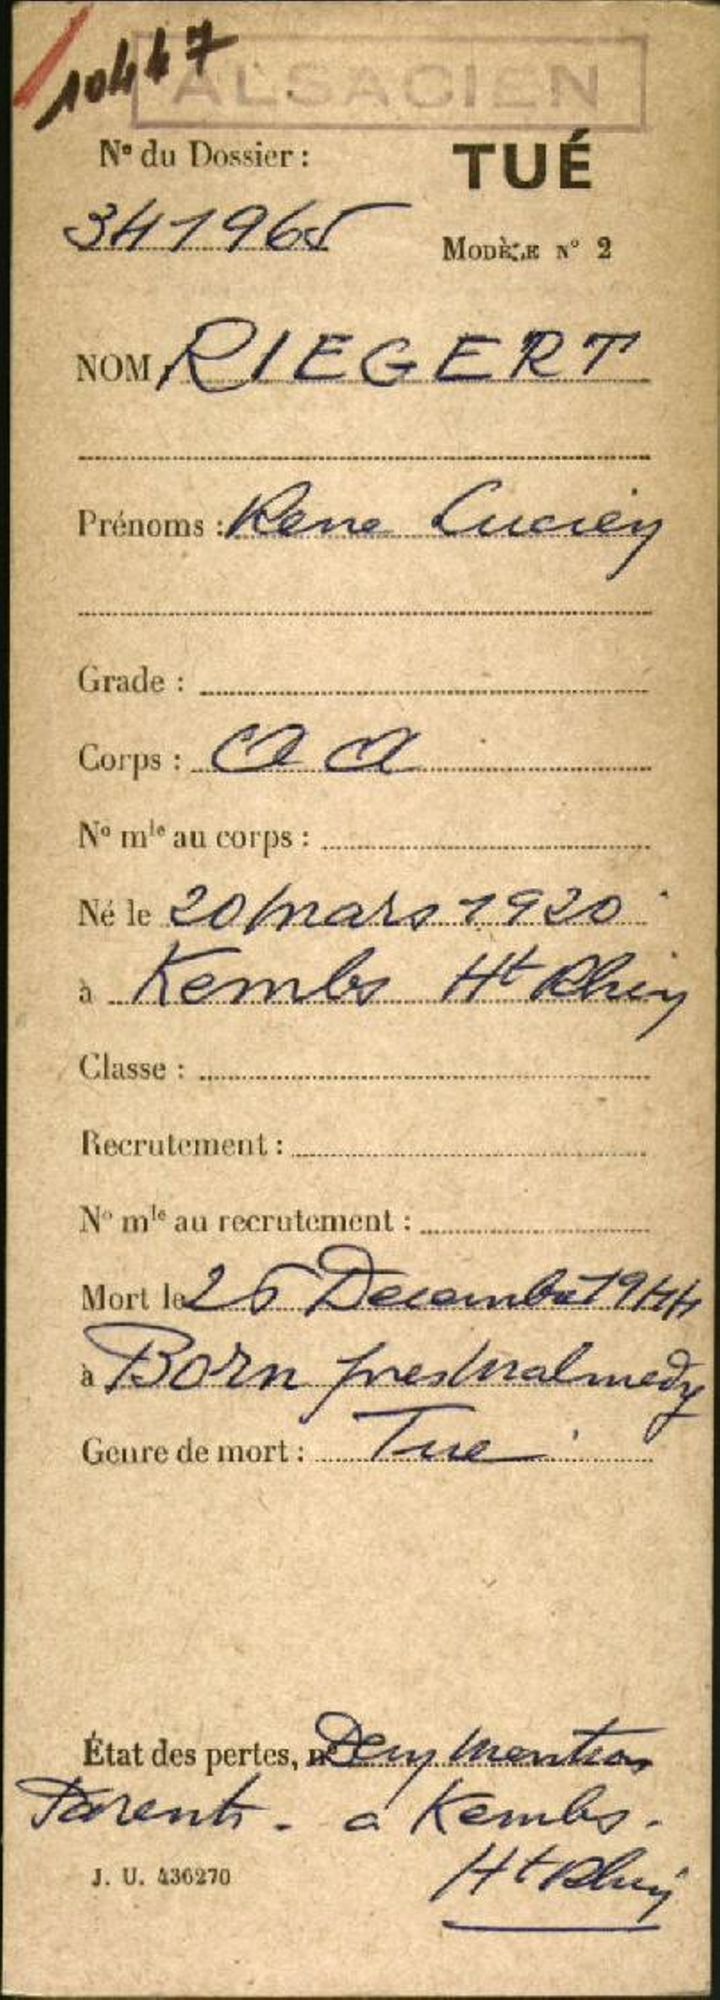 10447
ALSACIEN
N° du Dossier :
TUÉ
341965
MODÈLE N° 2
NOM RIEGERT
Prénoms : Rene Lucien
Grade :
Corps : A A
N° mle au corps :
Né le 20 mars 1920
à Kembs Ht Rhin
Classe :
Recrutement :
N° mle au recrutement :
Mort le 26 Decembre 1944
à Born pres Malmedy
Genre de mort : Tue
État des pertes, n° mention
Parents - a Kembs.
J. U. 436270
Ht Rhin